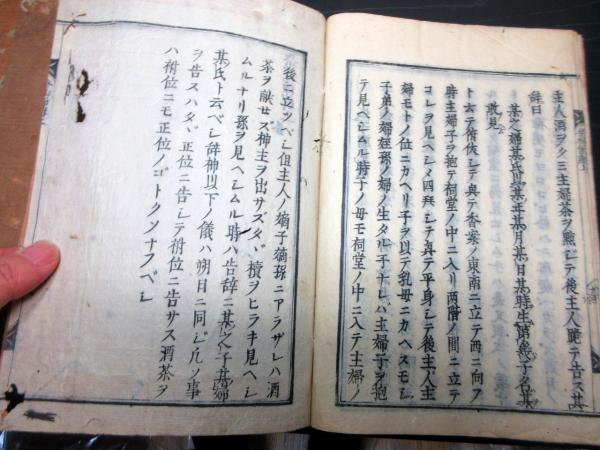 主人酒ヲクミ主婦茶ヲ點シテ後主人跪テ告ス其
辞曰
某之婦某氏以某年某月某日某時生第幾子名某
敢見
ト云テ俯伏シテ興テ香案ノ東南ニ立テ西ニ向フ
時主婦子ヲ抱テ祠堂ノ中ニ入リ両階ノ間ニ立テ
コレヲ見ヘシメ四拜シテ興テ平身シテ後主人主
婦モトノ位ニカヘリ子ヲ以テ乳母ニカヘスモシ
子弟ノ婦姪孫ノ婦ノ生タル子ナレバ主婦子ヲ抱
テ見ヘシムル時子ノ母モ祠堂ノ中ニ入テ主婦ノ
後ニ立ツベレ但主人ノ嫡子嫡孫ニアラザレハ酒
茶ヲ献セズ神主ヲ出サズタヾ櫝ヲヒラキ見ヘシ
ムルナリ孫ヲ見ヘシムル時ハ告辞ニ某之子某婦
某氏ト云ベレ辞神以下ノ儀ハ朔日ニ同ジ凡ソ事
ヲ告スハタヾ正位ニ告シテ祔位ニ告サス酒茶ヲ
ハ祔位ニモ正位ノゴトクソナフベレ